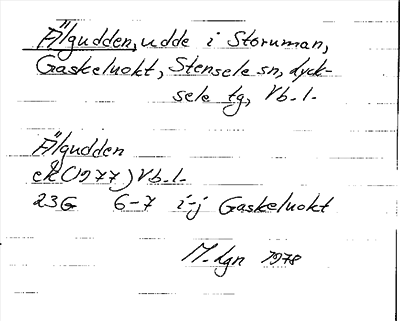 Älgudden, udde i Storuman,
Gaskeluokt, Stensele sn, Lyck-
sele tg, Vb.l.
Älgudden
ek (1977) Vb.l.
23G 6-7 i-j Gaskeluokt
M. Lgn 1978